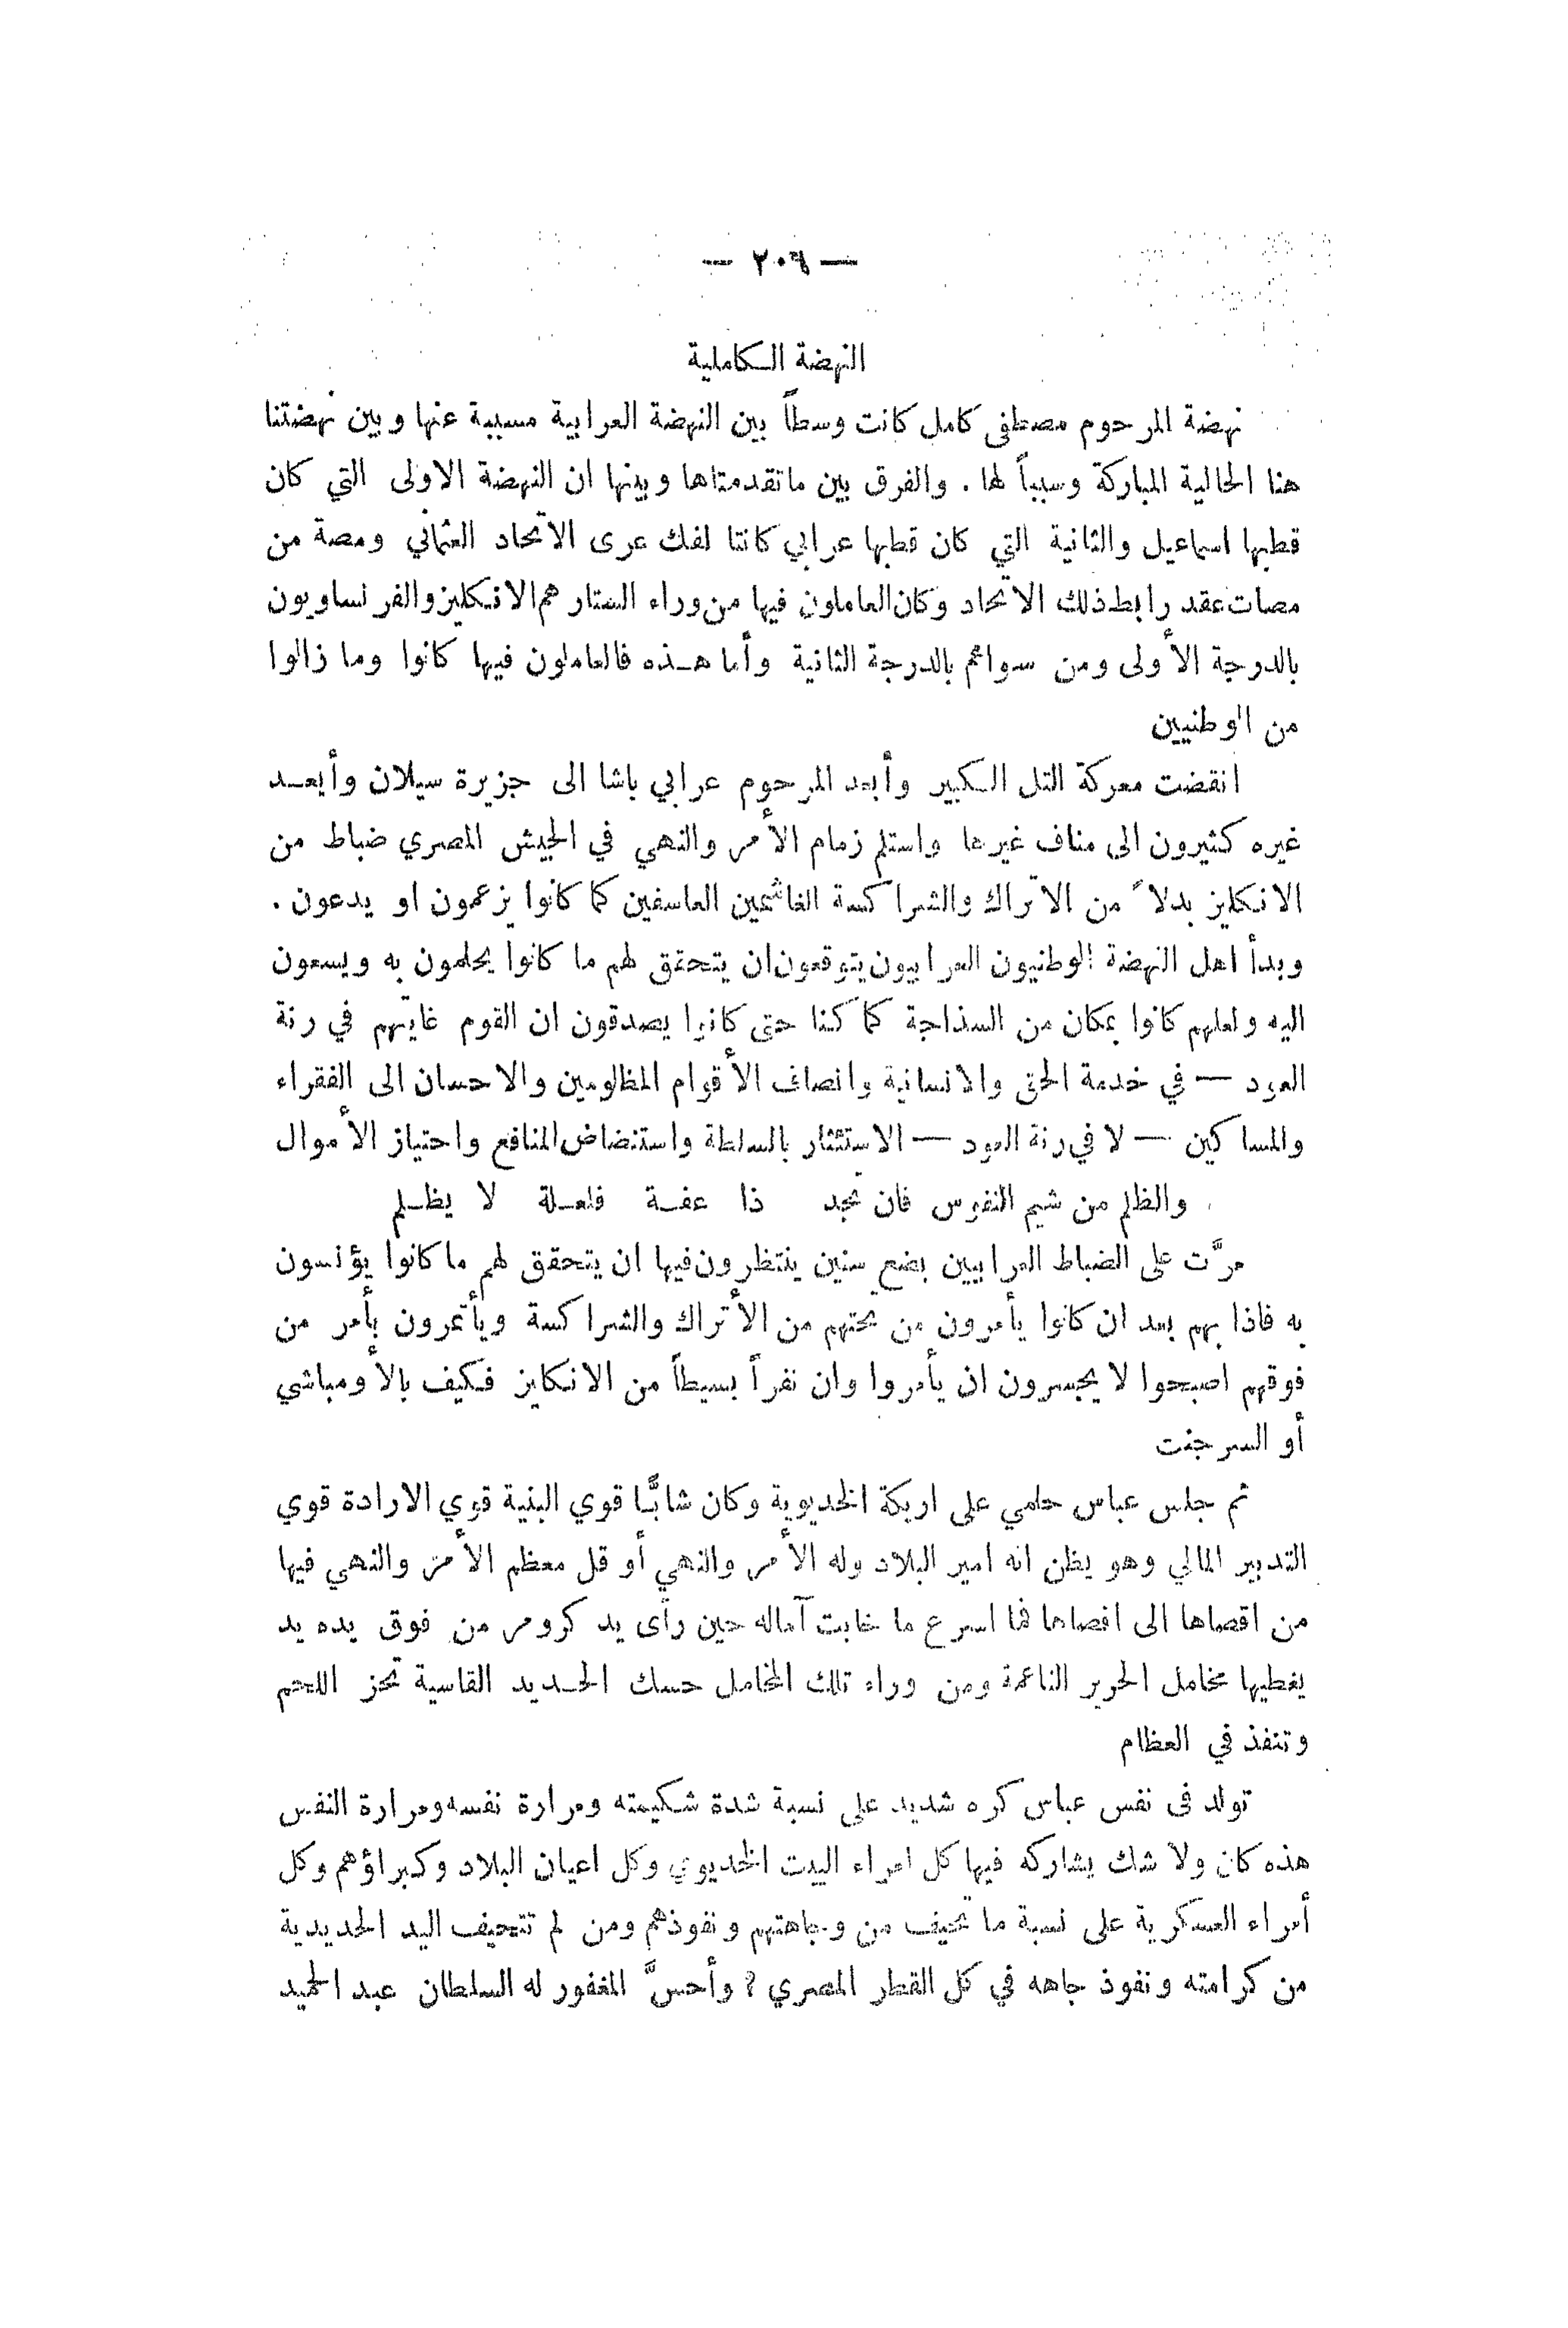 — ٢٠٦ —
النهضة الكاملية
نهضة المرحوم مصطفى كامل كانت وسطاً بين النهضة العرابية مسببة عنها وبين نهضتنا
هذا الحالية المباركة وسبباً لها . والفرق بين ما تقدمتاها وبينها ان النهضة الاولى التي كان
قطبها اسماعيل والثانية التي كان قطبها عرابي كانتا لفك عرى الاتحاد العثماني ومصة من
مصات عقد رابط ذلك الاتحاد وكان العاملون فيها من وراء الستار هم الانكليز والفرنساويون
بالدرجة الأولى ومن سواهم بالدرجة الثانية وأما هذه فالعاملون فيها كانوا وما زالوا
من الوطنيين
انقضت معركة التل الكبير وأبعد المرحوم عرابي باشا الى جزيرة سيلان وأبعد
غيره كثيرون الى مناف غيرها واستلم زمام الأمر والنهي في الجيش المصري ضباط من
الانكليز بدلاً من الاتراك والشراكسة الغاشمين العاسفين كما كانوا يزعمون او يدعون .
وبدأ اهل النهضة الوطنيون العرابيون يتوقعون ان يتحقق لهم ما كانوا يحلمون به ويسعون
اليه ولعلهم كانوا بمكان من السذاجة كما كنا حتى كانوا يصدقون ان القوم غايتهم في رنة
العود — في خدمة الحق والانسانية وانصاف الأقوام المظلومين والاحسان الى الفقراء
والمساكين — لا في رنة العود — الاستئثار بالسلطة واستنضاض المنافع واحتياز الأموال
والظلم من شيم النفوس فان تجد ذا عفة فلعلة لا يظلم
مرَّت على الضباط العرابيين بضع سنين ينتظرون فيها ان يتحقق لهم ما كانوا يؤنسون
به فاذا بهم بعد ان كانوا يأمرون من تحتهم من الأتراك والشراكسة ويأتمرون بأمر من
فوقهم اصبحوا لا يجسرون ان يأمروا وان نفراً بسيطاً من الانكليز فكيف بالأومباشي
أو السرجنت
ثم جلس عباس حلمي على اريكة الخديوية وكان شابًّا قوي البنية قوي الارادة قوي
التدبير المالي وهو يظن انه امير البلاد وله الأمر والنهي أو قل معظم الأمر والنهي فيها
من اقصاها الى اقصاها فما اسرع ما خابت آماله حين رأى يد كرومر من فوق يده يد
يغطيها مخامل الحرير الناعمة ومن وراء تلك المخامل حسك الحديد القاسية تحز اللحم
وتنفذ في العظام
تولد فى نفس عباس كره شديد على نسبة شدة شكيمته ومرارة نفسه ومرارة النفس
هذه كان ولا شك يشاركه فيها كل امراء البيت الخديوي وكل اعيان البلاد وكبراؤهم وكل
أمراء العسكرية على نسبة ما تحيف من وجاهتهم ونفوذهم ومن لم تتحيف اليد الحديدية
من كرامته ونفوذ جاهه في كل القطر المصري ؟ وأحسَّ المغفور له السلطان عبد الحميد